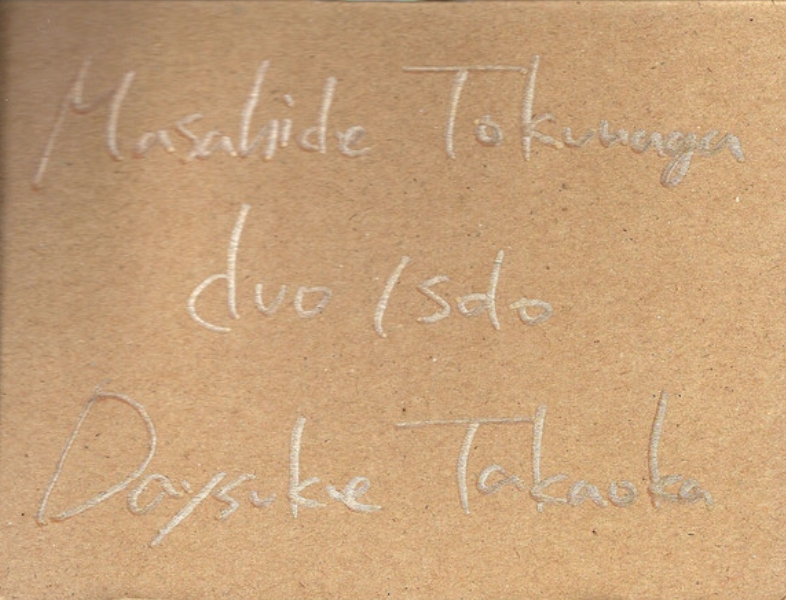 Masahide Tokunaga
duo / solo
Daysuke Takaoka